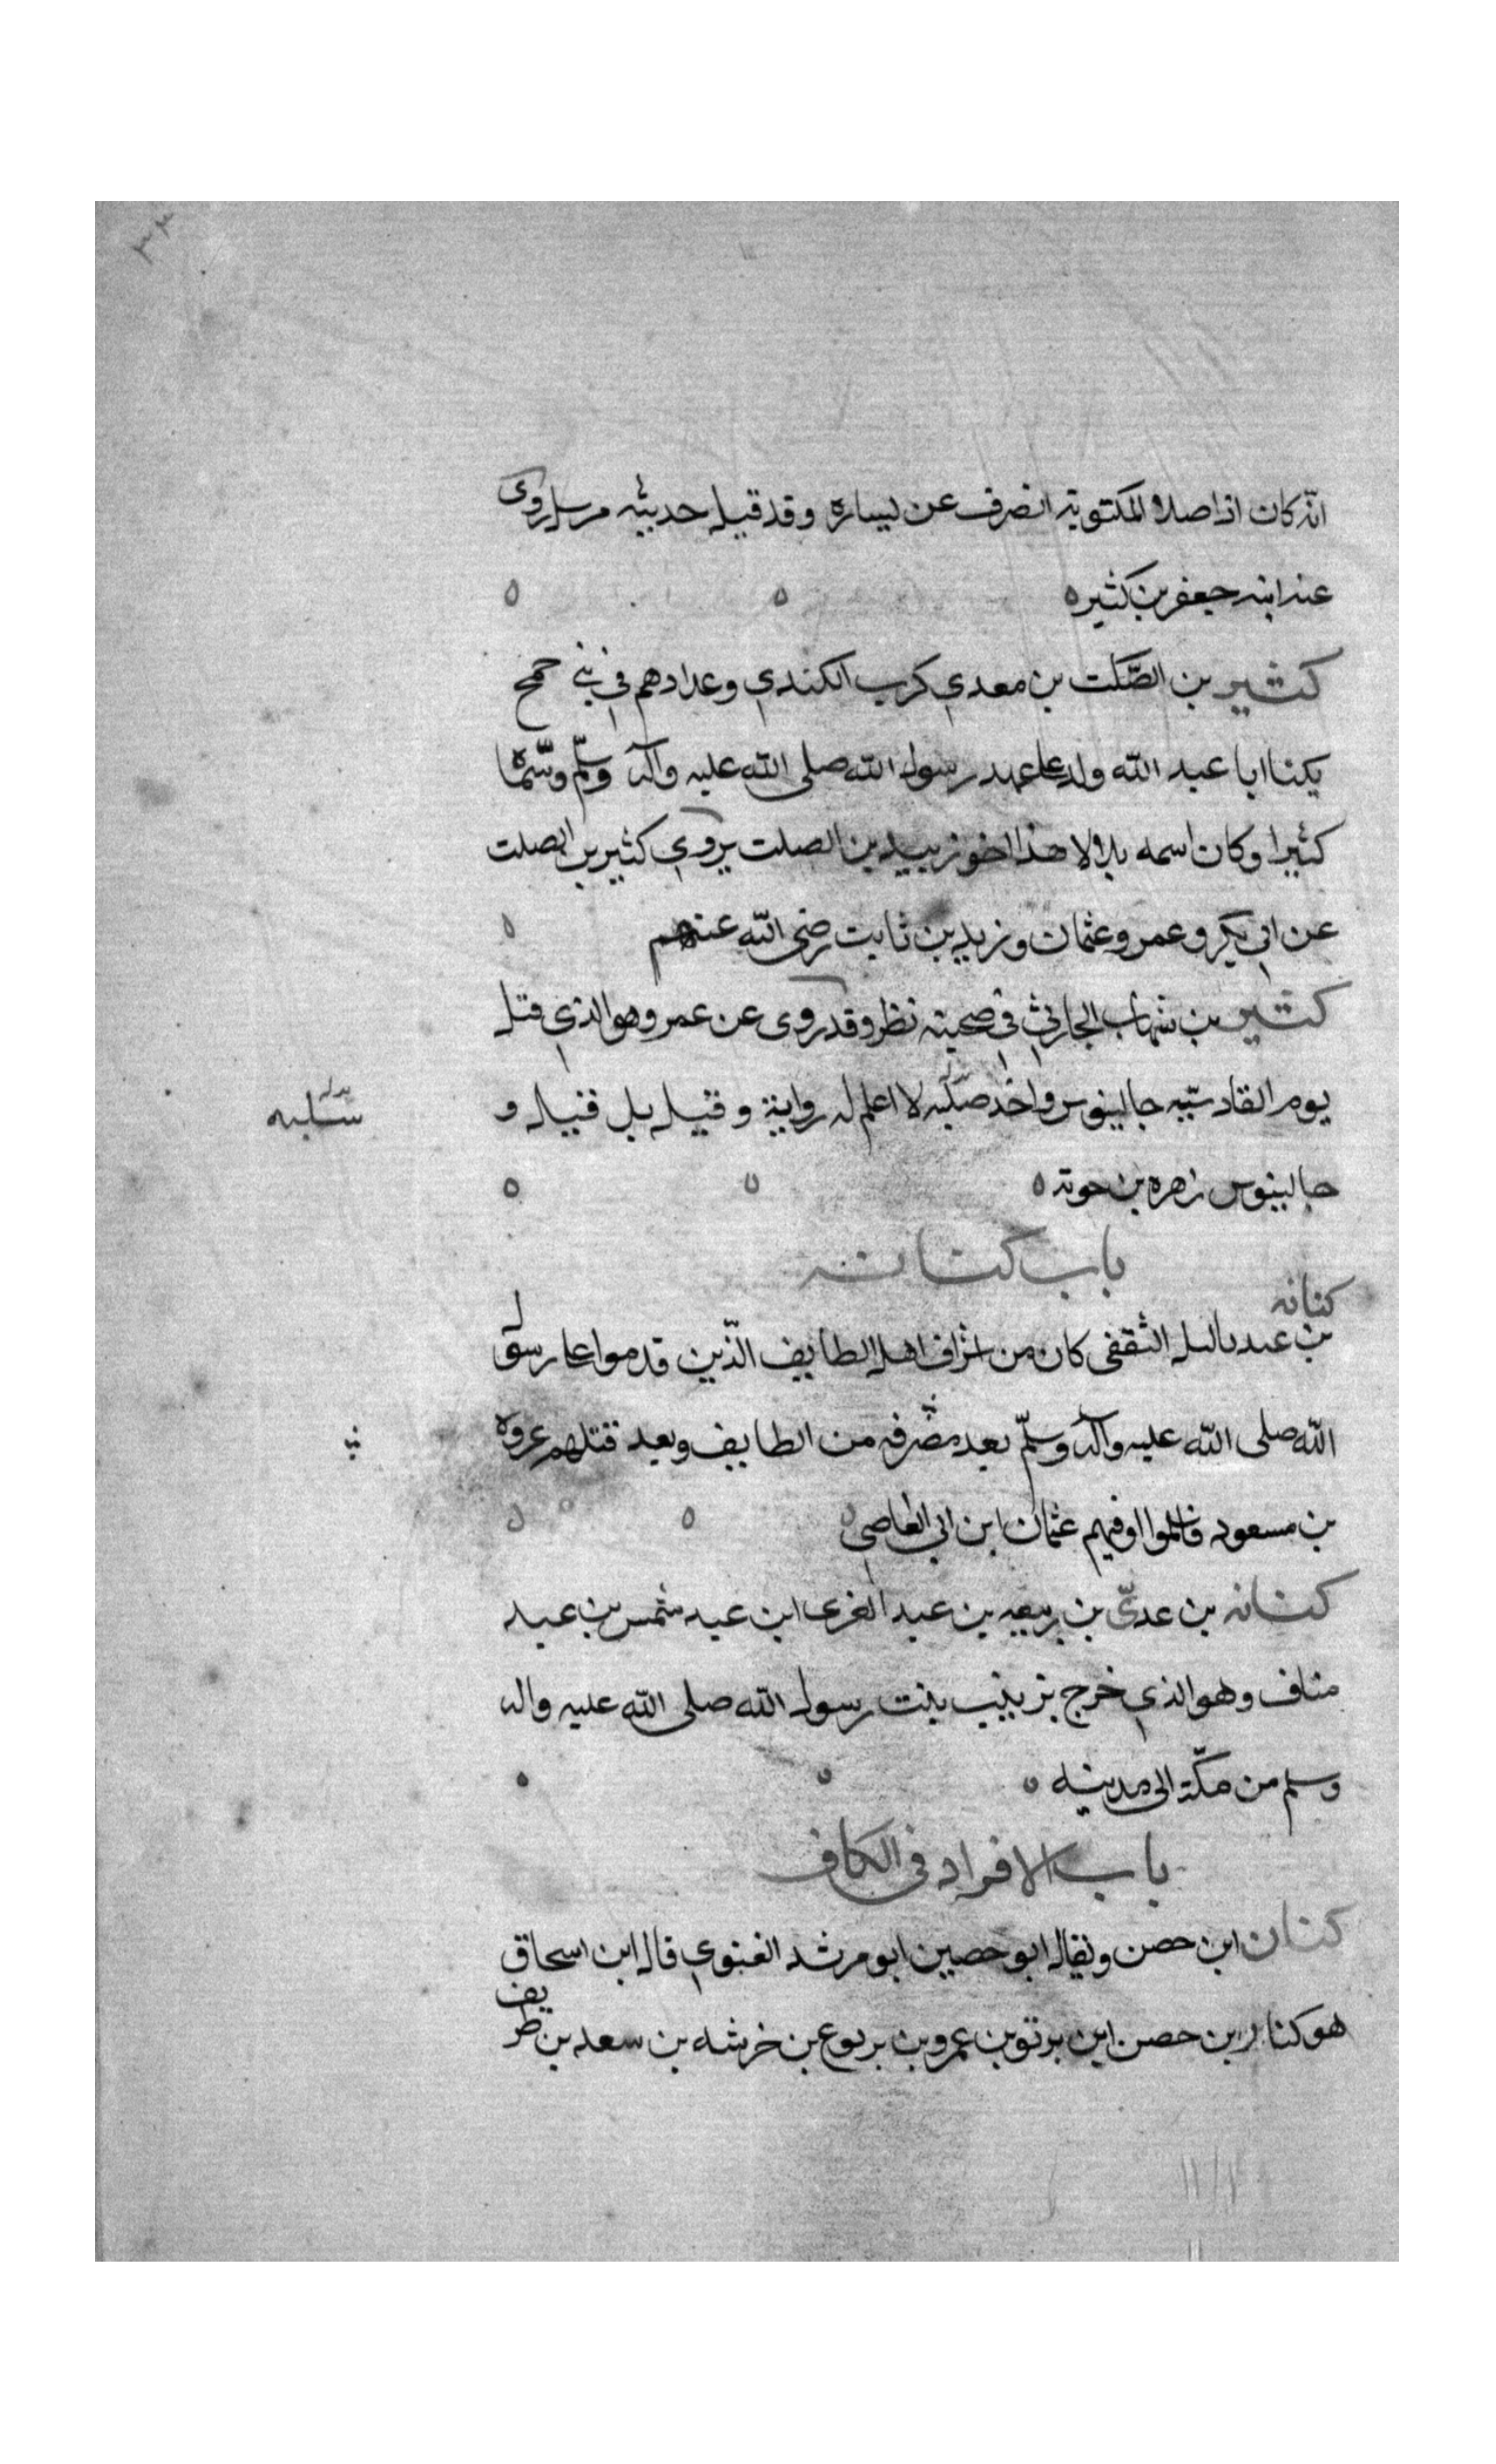 ٣٣
انه كان اذا صلا المكتوبة انصرف عن يساره وقد قيل حديثه مرسل روى
عنه ابنه جعفر بن كثير ه
كثير بن الصّلت بن معدي كرب الكندي وعدادهم في بني جمح
يكنا ابا عبد الله ولد على عهد رسول الله صلى الله عليه وآله وسلّم وسّماه
كثيرا وكان اسمه بلالا هذا اخو زبيد بن الصلت يروي كثير بن الصلت
عن ابي بكر وعمر وعثمان وزيد بن ثابت رضى الله عنهم
كثير بن شهاب الحارثي في صحبته نظر وقد روى عن عمر وهو الذي قتل
يوم القادسيه جالينوس واخذ صلبه لا اعلم له رواية وقيل بل قتيله و
سلبه
جالينوس زهره بن حوته ه
باب كنانه
كنانه
بن عبد ياليل الثقفى كان من اشراف اهل الطايف الّذين قدموا على رسول
الله صلى الله عليه وآله وسلّم بعد منصرفه من الطايف وبعد قتلهم عروه
بن مسعود فاسلموا وفيهم عثمان ابن ابي العاصي
كنانه بن عديّ بن ربيعه بن عبد العزى ابن عبد شمس بن عبد
مناف وهو الذي خرج بزينب بنت رسول الله صلى الله عليه واله
وسلم من مكّة الى مدينه ه
باب الافراد في الكاف
كنان ابن حصن ويقال ابو حصين ابو مرشد الغنوي قال ابن اسحاق
هو كناز بن حصن ابن يربوع بن عمرو بن يربوع بن خرشه بن سعد بن طريف